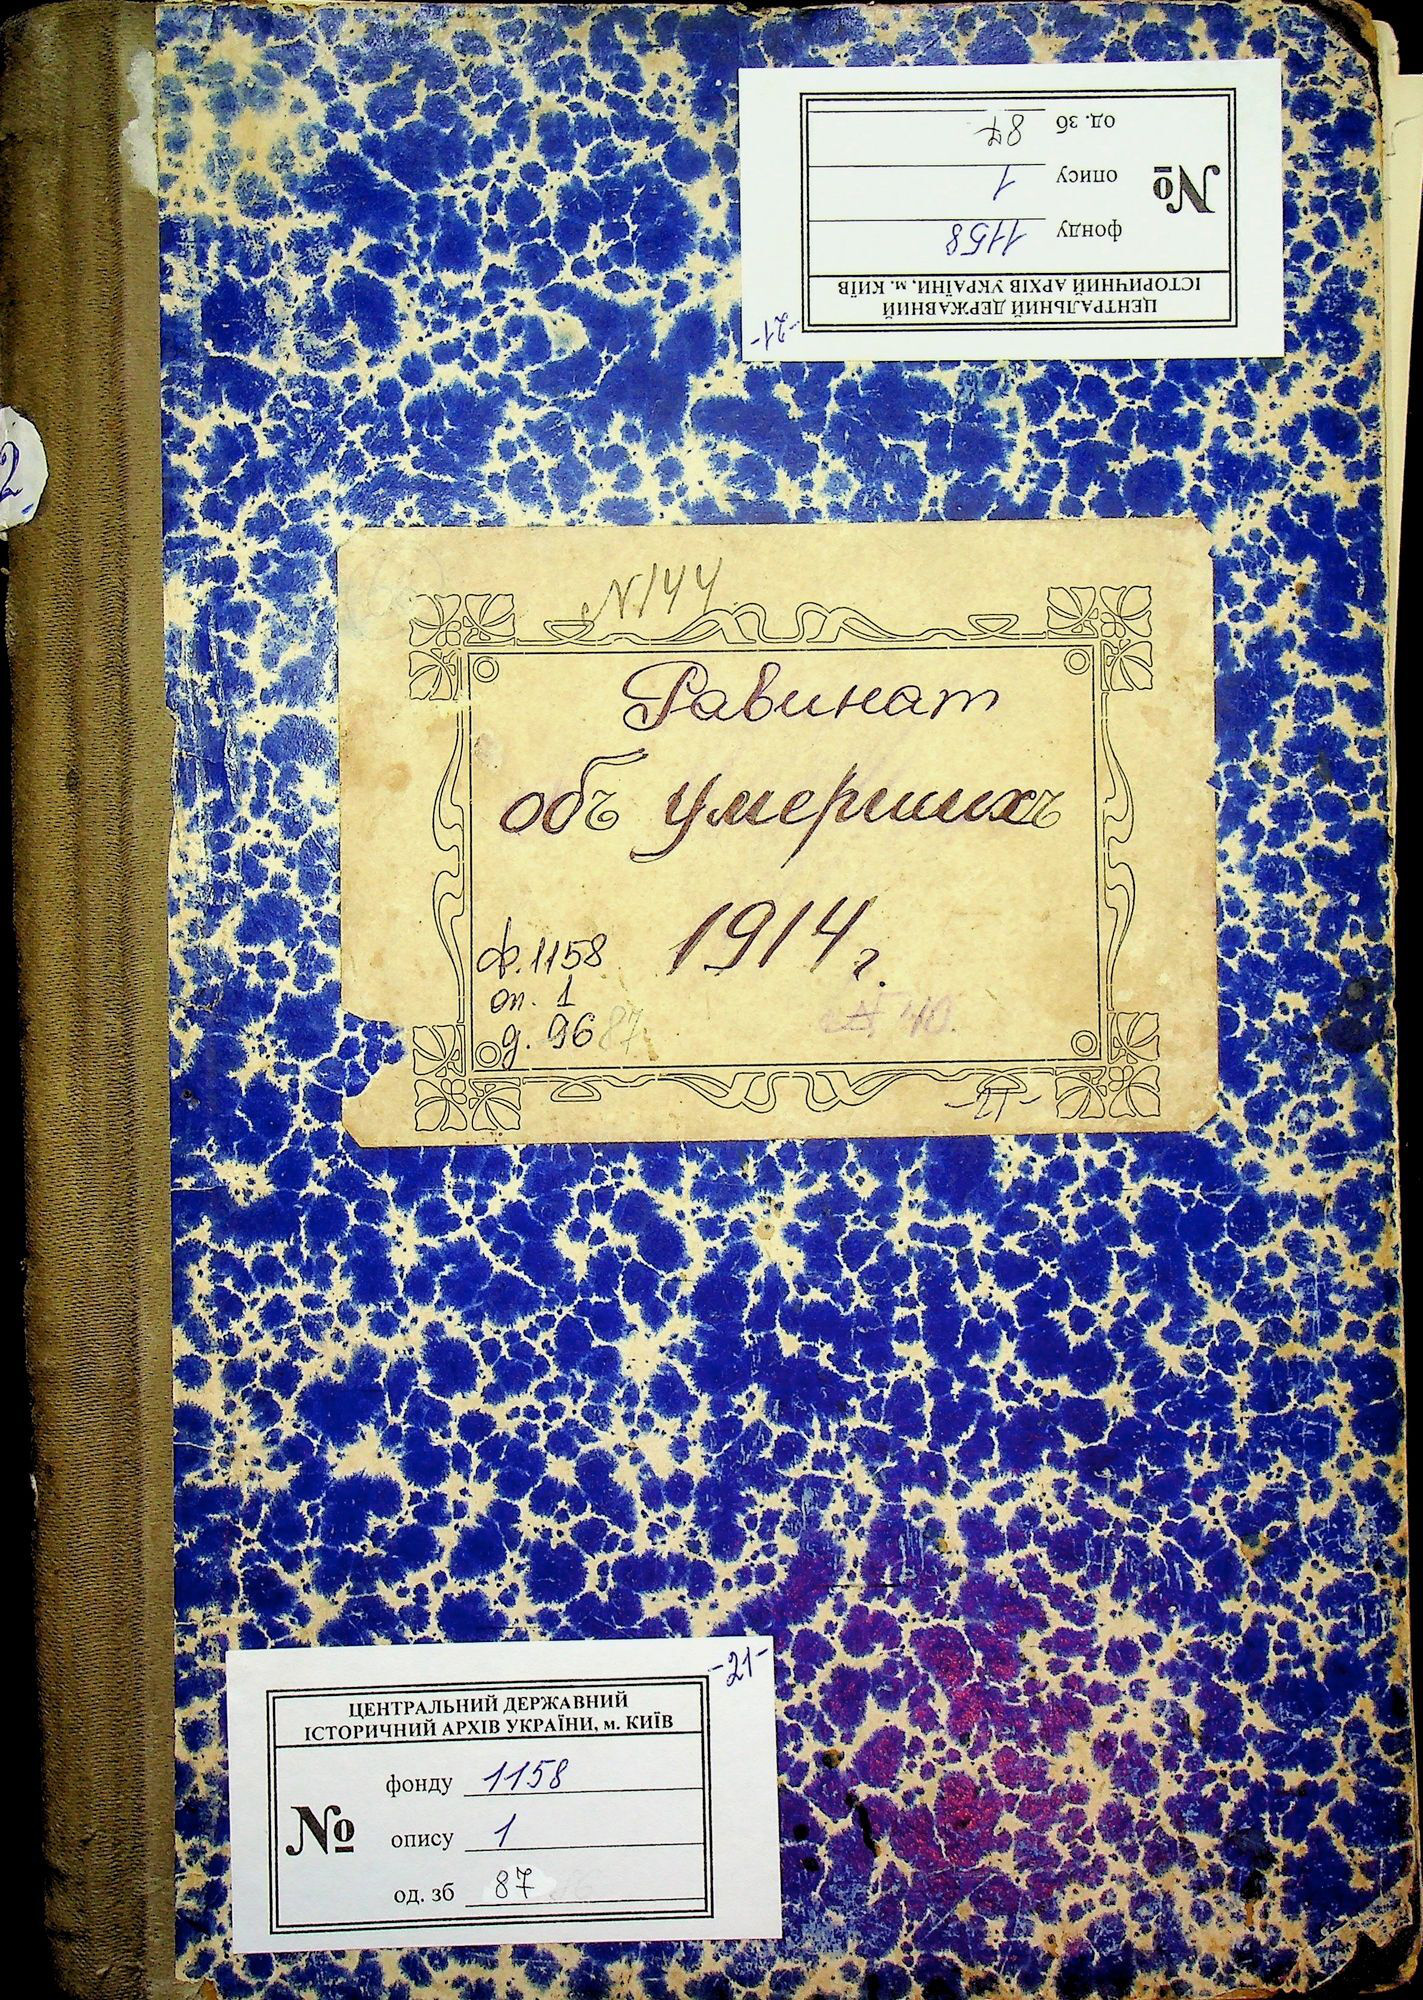 ЦЕНТРАЛЬНИЙ ДЕРЖАВНИЙ
ІСТОРИЧНИЙ АРХІВ УКРАЇНИ, м. КИЇВ
фонду 1158
№ опису 1
од. зб 87
-21-
2
№ 144
Равинат
объ умершихъ
1914 г.
ф. 1158
оп. 1
д. 96 87
№ 40.
-21-
-21-
ЦЕНТРАЛЬНИЙ ДЕРЖАВНИЙ
ІСТОРИЧНИЙ АРХІВ УКРАЇНИ, м. КИЇВ
фонду 1158
№ опису 1
од. зб 87